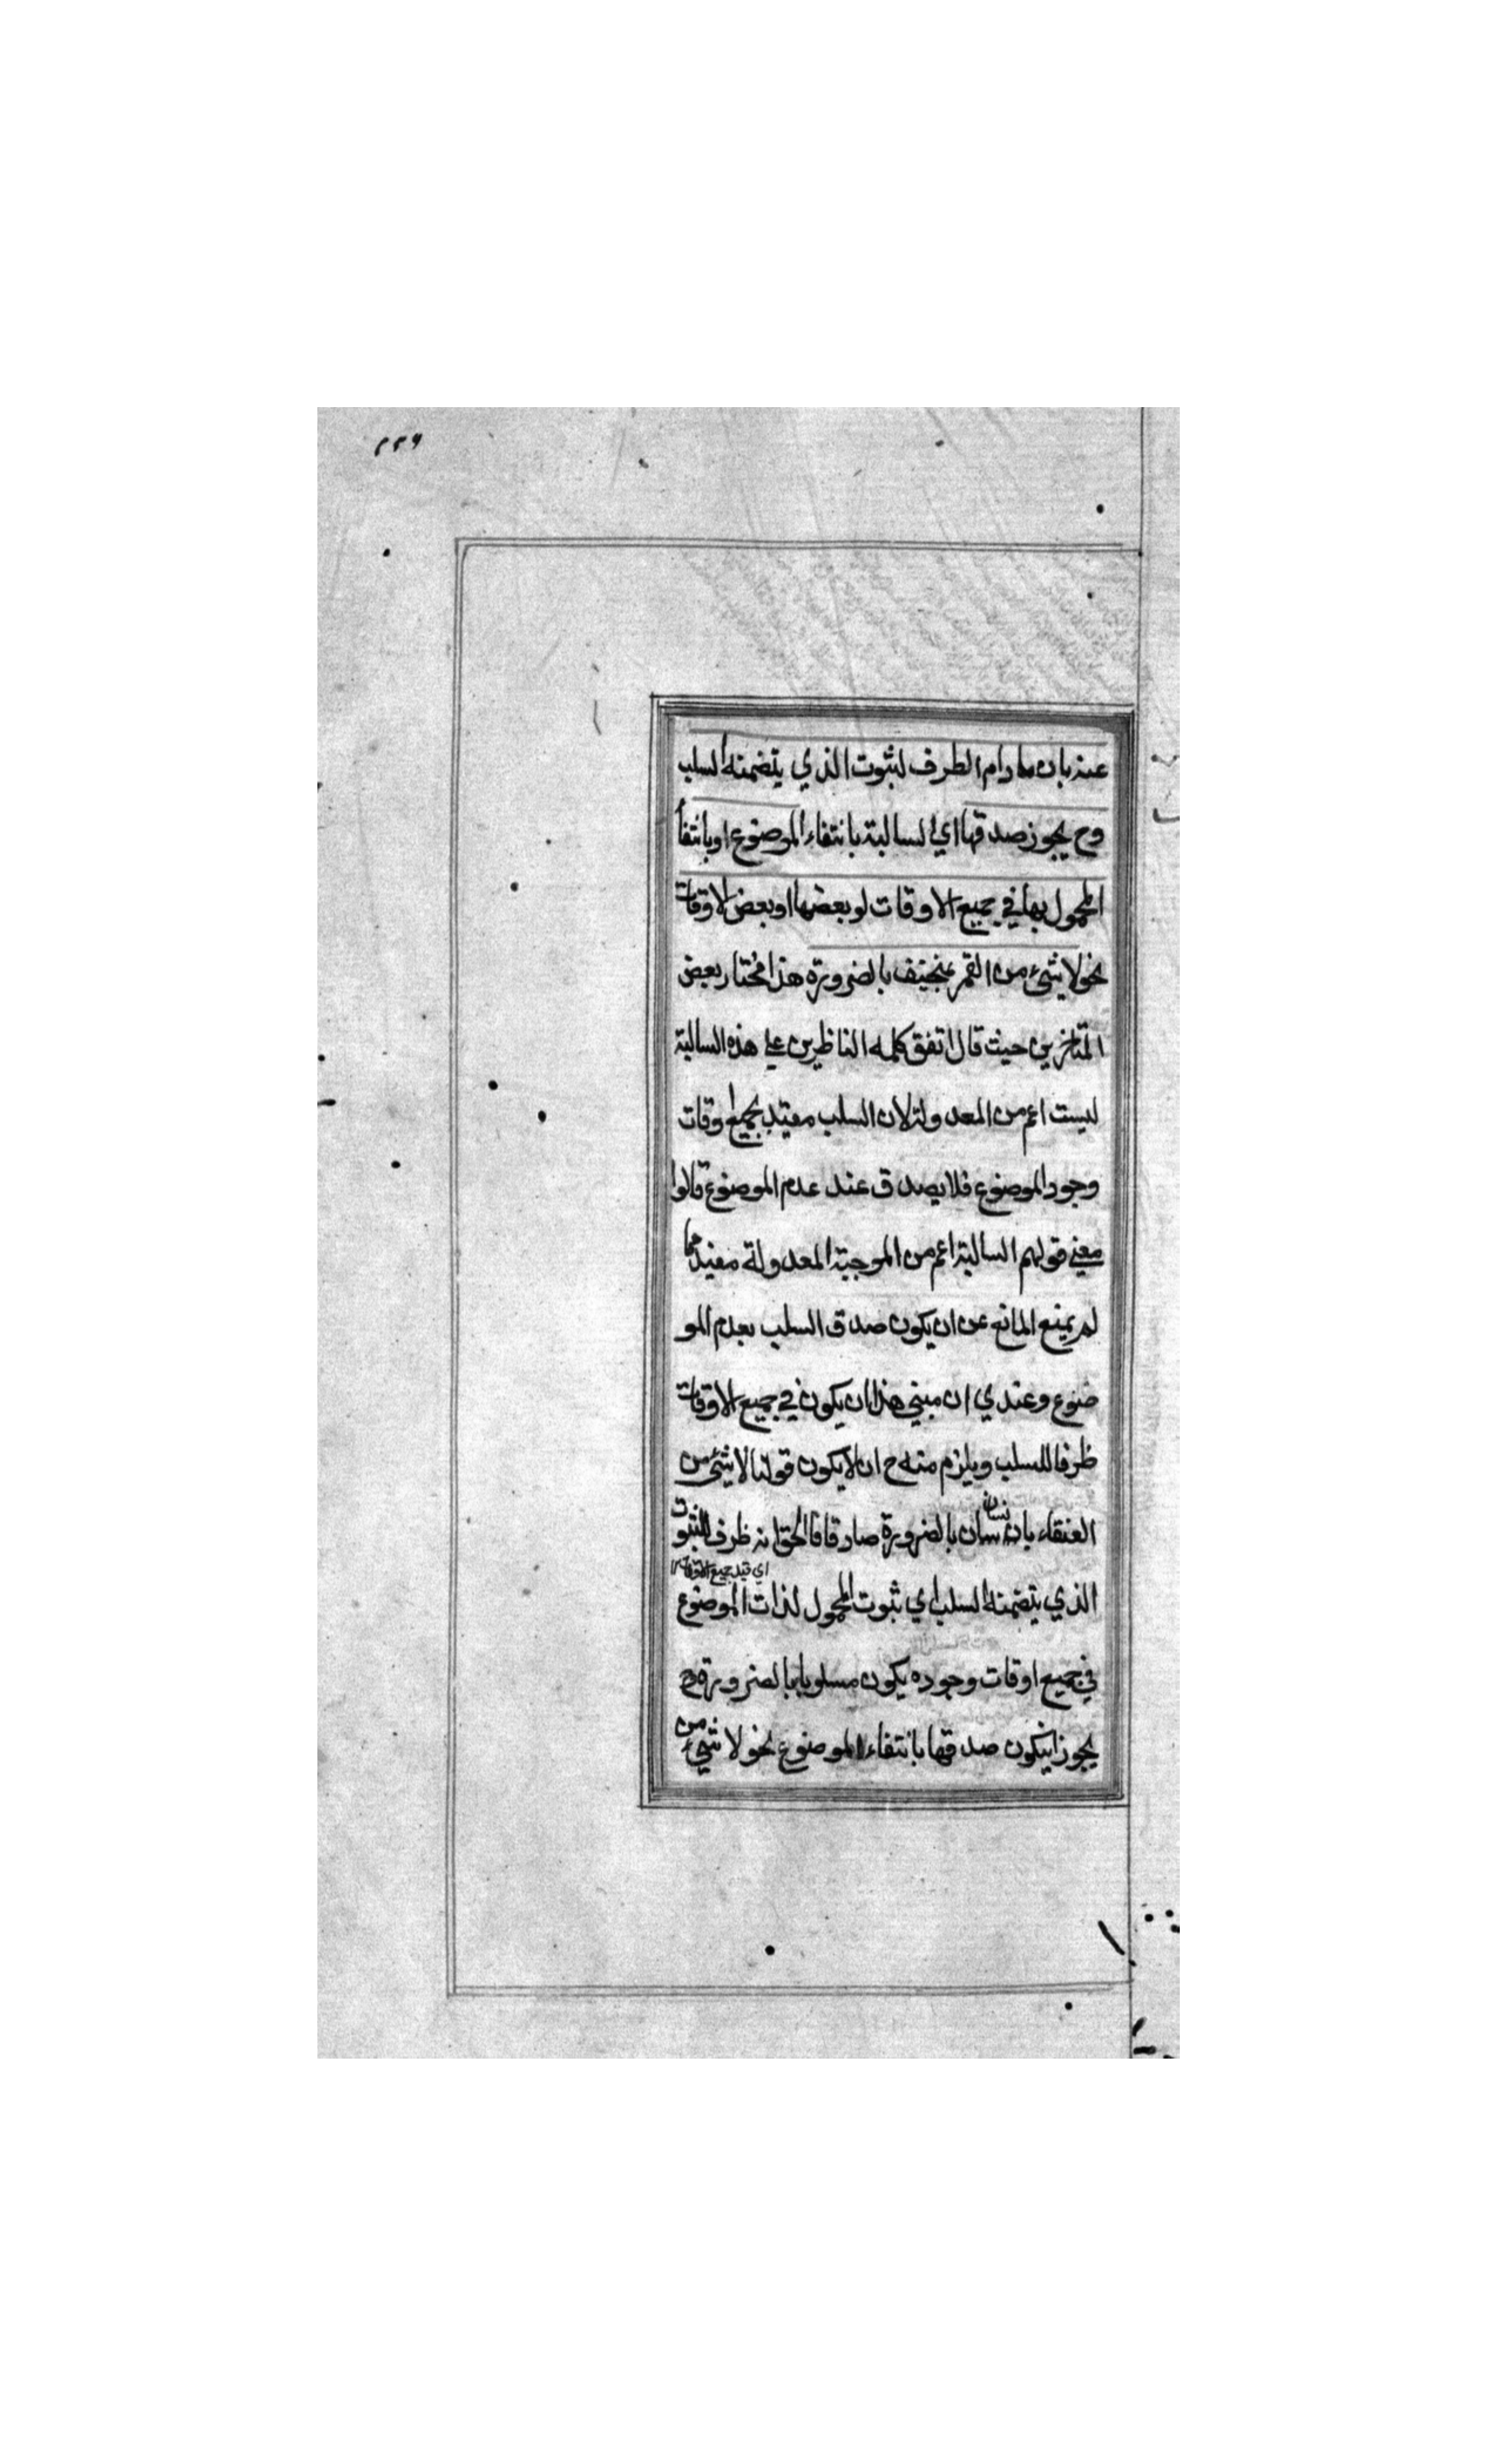 ٢٢٦
عنه بان مادام الطرف لثبوت الذي يتضمنه السلب
وح يجوز صدقها اي السالبة بانتفاء الموضوع او بانتفا
المحمول بها في جميع الاوقات لو بعضها او بعض الاوقات
نحو لا شئ من القمر بمنخسف بالضرورة هذا مختار بعض
المتاخرين حيث قال اتفق كلمه الناظرين على هذه السالبة
ليست اعم من المعدولة لان السلب مقيد بجميع اوقات
وجود الموضوع فلا يصدق عند عدم الموضوع قالوا
معنى قولهم السالبة اعم من الموجبة المعدولة مفيد مما
لم يمنع المانع عن ان يكون صدق السلب بعدم المو
ضوع وعندي ان مبنى هذا ان يكون في جميع الاوقات
ظرفا للسلب ويلزم منه ح ان لا يكون قولنا لا شئ من
العنقاء بانسان بالضرورة صادقا فالحق انه ظرف للثبوت
اي قيد جميع الاوقات
الذي يتضمنه السلب اي ثبوت المحمول لذات الموضوع
في جميع اوقات وجوده يكون مسلوبا بالضرورة وح
يجوز ان يكون صدقها بانتفاء الموضوع نحو لا شئ من